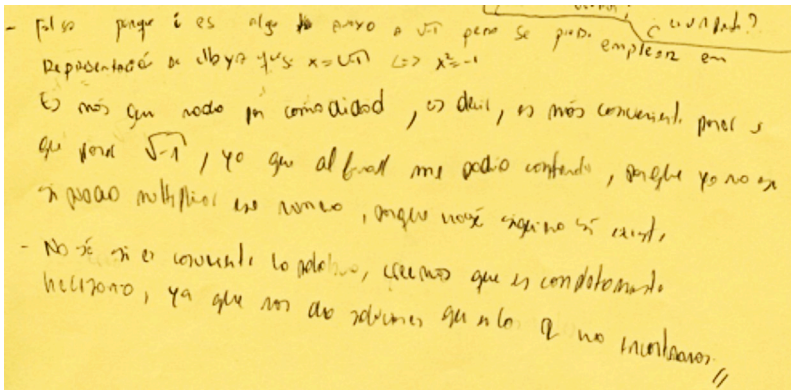 ¿ cumplido?
- Falso porque i es algo ajeno a √-1 pero se puede emplear en
Representación de ella ya que si x=√-1 <=> x²=-1
Es más que nada por comodidad, es decir, es más conveniente poner i
que poner √-1, ya que al final me podía confundir, porque yo no sé
si puedo multiplicar ese número, porque no sé siquiera si existe
- No sé si es conveniente la palabra, creemos que es completamente
necesario, ya que nos da soluciones que en los R no encontramos //